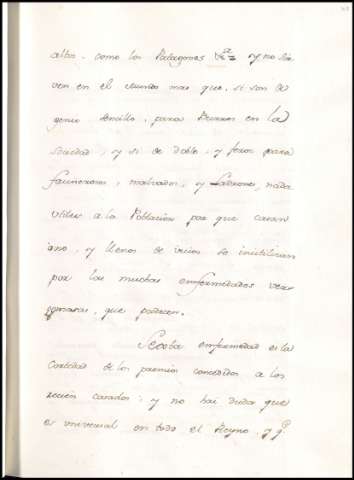 altos, como los Patagones &a y no sir
ven en el mundo mas que, si son de
genio sencillo, para Burros en la
sociedad, y si de doble, y feroz para
facinerosos, malvados, y Ladrones, nada
utiles a la Poblacion por que casan
, y llenos de vicios se inutilizan
por las muchas enfermedades ver
gonzosas, que padecen.
Sexta enfermedad es la
cortedad de los premios concedidos a los
recien casados; y no hai duda que
es universal en todo el Reyno, y q.e